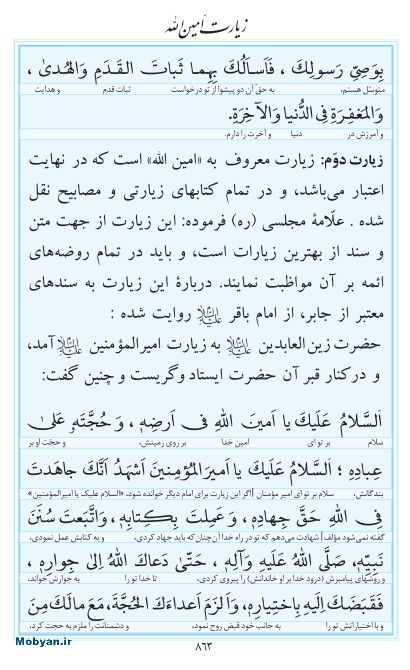 زیارت أمین‌الله
بِوَصِیِّ رَسولِكَ ، فَاَسأَلُكَ بِهِما ثَباتَ القَدَمِ وَالهُدیٰ ،
متوسّل هستم، به حق آن دو پیشوا از تو درخواست ثبات قدم و هدایت
وَالمَغفِرَةِ فِی الدُّنیا وَالآخِرَةِ.
و آمرزش در دنیا و آخرت را دارم.
زیارت دوّم: زیارت معروف به «امین الله» است که در نهایت
اعتبار می‌باشد، و در تمام کتابهای زیارتی و مصابیح نقل
شده . علّامهٔ مجلسی (ره) فرموده: این زیارت از جهت متن
و سند از بهترین زیارات است، و باید در تمام روضه‌های
ائمه بر آن مواظبت نمایند. دربارهٔ این زیارت به سندهای
معتبر از جابر، از امام باقر علیه‌السلام روایت شده :
حضرت زین‌العابدین علیه‌السلام به زیارت امیرالمؤمنین علیه‌السلام آمد،
و درکنار قبر آن حضرت ایستاد وگریست و چنین گفت:
اَلسَّلامُ عَلَیكَ یا اَمینَ اللهِ فی اَرضِهٖ، وَ حُجَّتَهُ عَلیٰ
سلام بر تو ای امین خدا بر روی زمینش، و حجّت او بر
عِبادِهٖ ؛ اَلسَّلامُ عَلَیكَ یا اَمیرَ المُؤمِنینَ اَشهَدُ اَنَّكَ جاهَدتَ
بندگانش، سلام بر تو ای امیر مؤمنان [اگر این زیارت برای امام دیگر خوانده شود، «السلام علیک یا امیرالمؤمنین»
فِی اللهِ حَقَّ جِهادِهٖ، وَ عَمِلتَ بِكِتابِهٖ، وَاتَّبَعتَ سُنَنَ
گفته نمی‌شود مؤلف] شهادت می‌دهم که تو در راه خدا آن چنان که باید جهاد کردی، و به کتابش عمل نمودی،
نَبِیِّهٖ، صَلَّی اللهُ عَلَیهِ وَآلِهٖ ، حَتّیٰ دَعاكَ اللهُ اِلیٰ جِوارِهٖ ،
و روشهای پیامبرش (درود خدا بر او و خاندانش) را پیروی کردی، تا خدا تو را به جوارش خواند،
فَقَبَضَكَ اِلَیهِ بِاختِیارِهٖ، وَ اَلزَمَ اَعداءَكَ الحُجَّةَ، مَعَ مالَكَ مِنَ
و با اختیاراتش تو را به جانب خود قبض روح نمود، و دشمنانت را ملزم به حجت کرد،
۸۶۳
Mobyan.ir